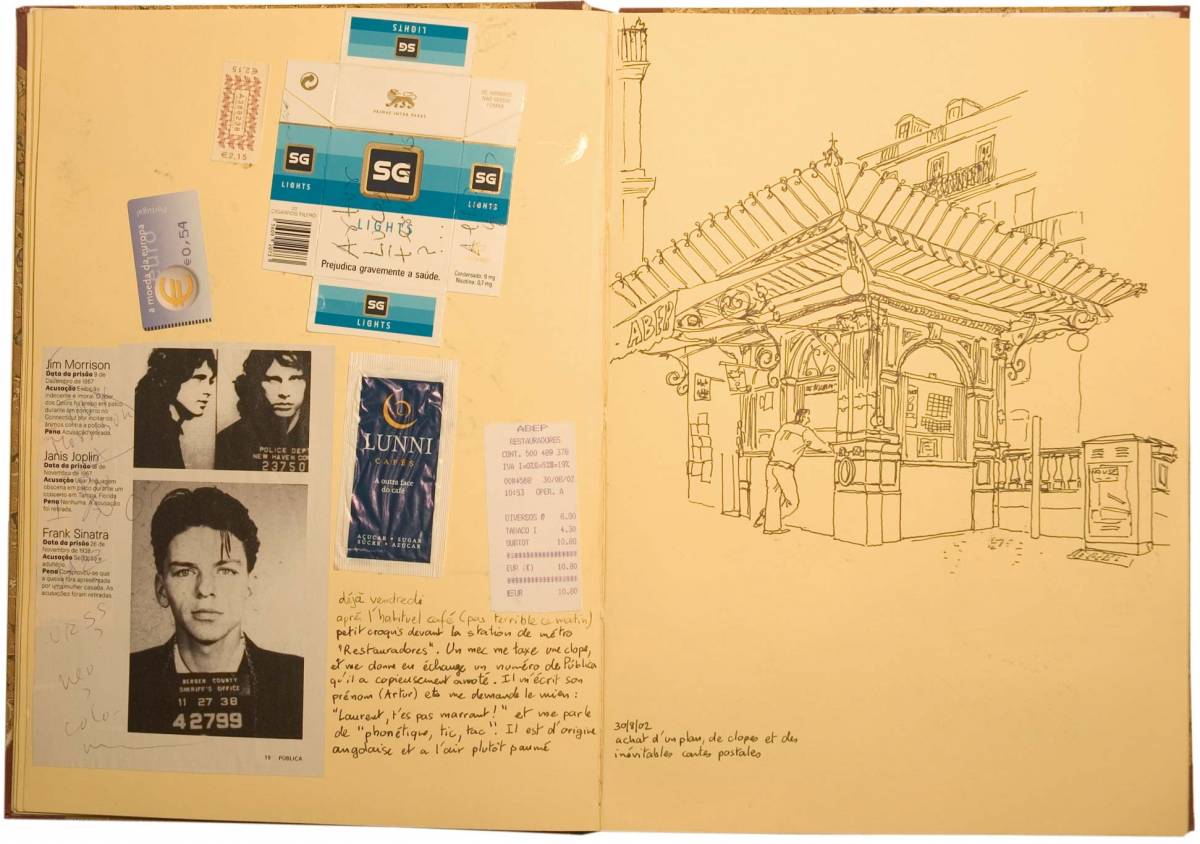 €2,15
A382238
€2,15
Portugal
a moeda da europa
euro
€0,54
LIGHTS
SG
PRIMUS INTER PARES
SG
LIGHTS
SG
LIGHTS
SG
LIGHTS
CIGARROS FILTRO
Prejudica gravemente a saúde.
Condensado: 9 mg
Nicotina: 0,7 mg
SG
LIGHTS
Jim Morrison
Data da prisão 9 de
Dezembro de 1967
Acusação Exibição
indecente e imoral. O líder
dos Doors foi preso em palco
durante um concerto no
Connecticut por incitar os
ânimos contra a polícia
Pena Acusação retirada.
Janis Joplin
Data da prisão de
Novembro de 1967
Acusação Usar linguagem
obscena em palco durante um
concerto em Tampa, Florida
Pena Nenhuma. A acusação
foi retirada.
Frank Sinatra
Data da prisão 26 de
Novembro de 1938
Acusação Sedução e
adultério.
Pena Comprovou-se que
a queixa fora apresentada
por uma mulher casada. As
acusações foram retiradas
POLICE DEPT
NEW HAVEN CO
23750
BERGEN COUNTY
SHERIFF'S OFFICE
11 27 38
42799
19 PÚBLICA
URSS
?
neo
?
colo-
LUNNI
CAFÉS
A outra face
do café
AÇÚCAR • SUGAR
SUCRE • AZÚCAR
ABEP
RESTAURADORES
CONT. 500 489 378
30/08/02
10:53 OPER. A
DIVERSOS # 6.50
TABACO I 4.30
SUBTOT 10.80
EUR (€) 10.80
#EUR 10.80
déjà vendredi
après l'habituel café (pas terrible ce matin)
petit croquis devant la station de métro
"Restauradores". Un mec me taxe une clope,
et me donne en échange un numéro de Pública
qu'il a copieusement annoté. Il m'écrit son
prénom (Artur) et me demande le mien :
"Laurent, t'es pas marrant!" et me parle
de "phonétique, tic, tac". Il est d'origine
angolaise et a l'air plutôt paumé
ABEP
30/8/02
achat d'un plan, de clopes et des
inévitables cartes postales